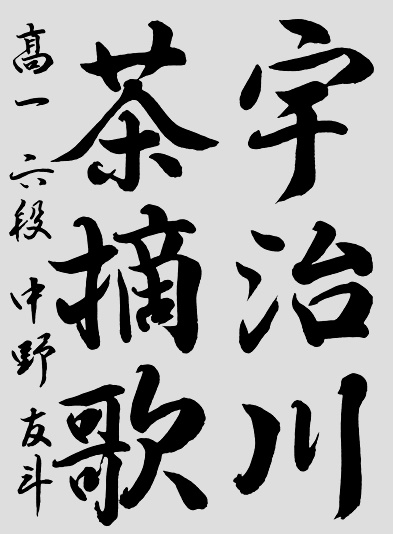 宇治川
茶摘歌
高一 六段 中野 友斗